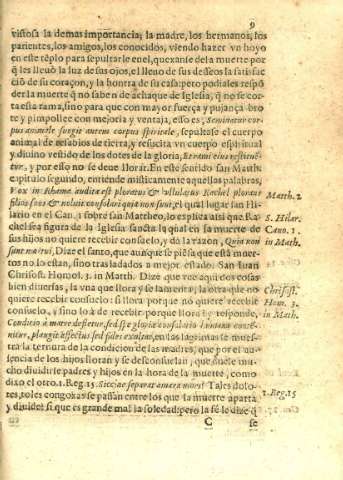 9
vistosa la demas importancia; la madre, los hermanos, los
parientes, los amigos, los conocidos, viendo hazer vn hoyo
en este tẽplo para sepultarle en el, quexanse de la muerte por
q̃ les lleuò la luz de sus ojos, el lleno de sus desseos la satisfac
ciõ de su coraçon, y la honrra de su casa: pero podiales respõ
der la muerte q̃ no saben de achaque de Iglesia, q̃ no se cor-
ta esta rama, sino para que con mayor fuerça y pujança bro
te y pimpollee con mejoria y ventaja, esso es, Seminatur cor-
pus animale surget autem corpus spiritale, sepultase el cuerpo
animal de resabios de tierra, y resucita vn cuerpo espiritual
y diuino vestido de los dotes de la gloria,
tur, y por esso no se deue llorar. En este sentido san Matth.
capitulo segundo, entiende misticamente aquellas palabras,
Vox in Rhama audita est ploratus & vllulatus Rachel plorans
filios suos & noluit consolari quia non sunt, el qual lugar san Hi-
lario en el Can. 1 sobre san Mattheo, lo esplica assi que Ra-
chel sea figura de la Iglesia sancta la qual en la muerte de
sus hijos no quiere receuir consuelo, y dà la razon, Quia non
sunt mortui, Dize el santo, que aunque se piẽsa que està muer-
tos no lo estan, sino trasladados a mejor estado. San Iuan
Chrisost. Homol. 3. in Matth. Dize que vee aqui dos cosas
bien diuersas, la vna que llora y se lamenta, la otra que no
quiere receuir consuelo: si llora porque no quiere receuir
consuelo, y sino lo à de receuir porque llora? y responde,
Conditio a matre defletur, sed spe gloriæ consolatio
nitur, plangit affectus sed fides exultat, en las lagrimas se mues-
tra la ternura de la condicion de las madres, que por el au-
sencia de los hijos lloran y se desconsuelan, que duele mu-
cho diuidirse padres y hijos en la hora de la muerte, como
dixo el otro. 1. Reg. 15. Siccine separat amara mors? Tales dolo-
res, tales congoxas se passan entre los que la muerte aparta
y diuide: si que es grande mal la soledad, pero la fè le dize q̃
C se
Matth. 2
S. Hilar.
Cano. 1.
in Math.
Chrisost.
Hom. 3.
in Math.
1. Reg. 15